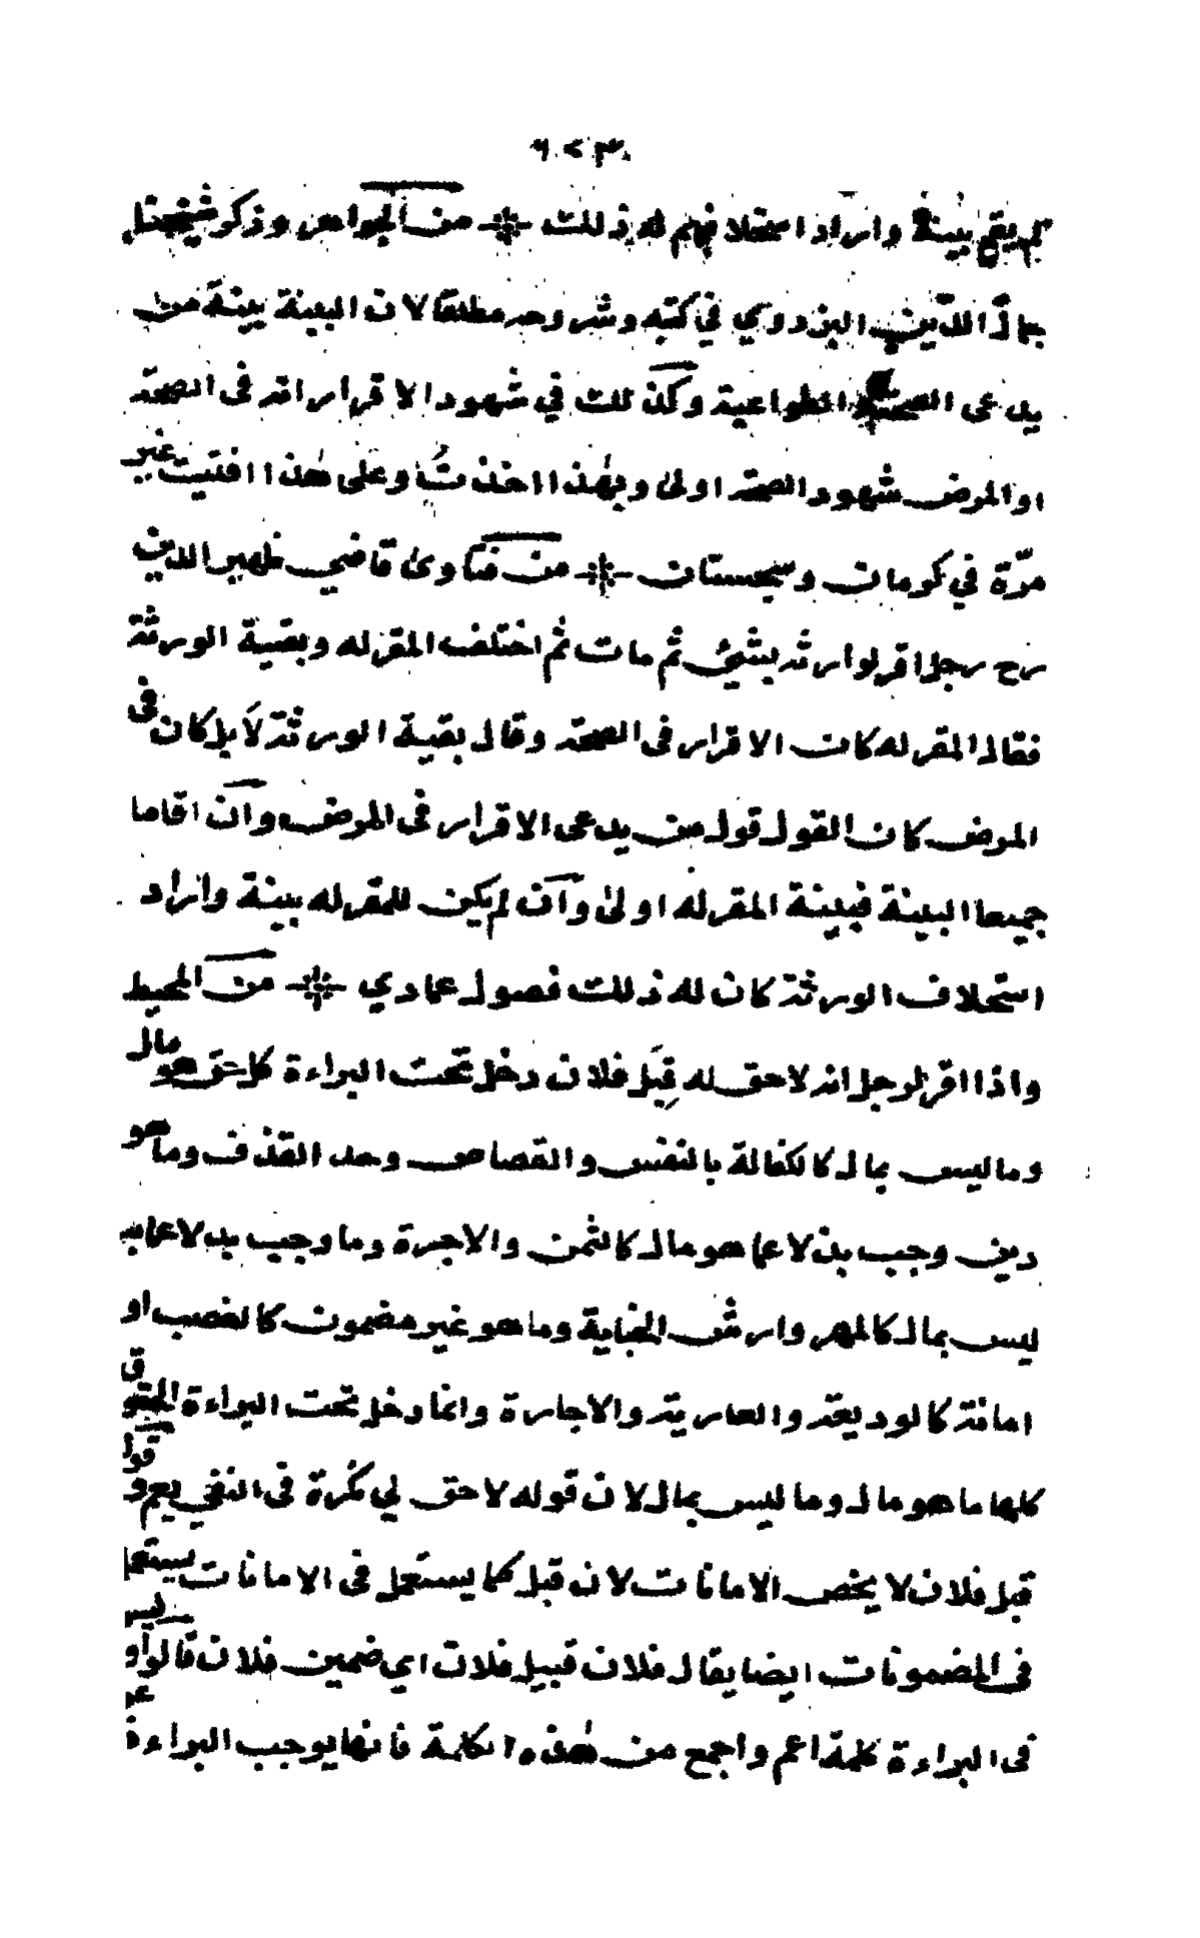 ٦٢٣
لم يقم بينة واراد استحلافهم له ذلك من الجواهر وذكر شيخنا
جمال الدين البزدوي في كتبه وشروحه مطلقا لان البينة بينة من
يدعى الصحة والطواعية وكذلك في شهود الاقرار انه فى الصحة
او المرض شهود الصحة اولى وبهذا اخذتُ وعلى هذا افتيت غير
مرّة في كرمان وسجستان من فتاوى قاضي ظهير الدين
رح رجل اقر لوارثه بشيئ ثم مات ثم اختلف المقر له وبقية الورثة
فقال المقر له كان الاقرار فى الصحة وقال بقية الورثة لا بل كان فى
المرض كان القول قول من يدعى الاقرار فى المرض وان اقاما
جميعا البينة فبينة المقر له اولى وان لم يكن للمقر له بينة واراد
استحلاف الورثة كان له ذلك فصول عمادي من المحيط
واذا اقر لرجل انه لا حق له قِبَل فلان دخل تحت البراءة كل حق هو مال
وما ليس بمال كالكفالة بالنفس والقصاص وحد القذف وما هو
دين وجب بدلا عما هو مال كالثمن والاجرة وما وجب بدلا عما
ليس بمال كالمهر وارش الجناية وما هو غير مضمون كالغصب او
امانة كالوديعة والعارية والاجارة وانما دخل تحت البراءة الحقوق
كلها ما هو مال وما ليس بمال لان قوله لا حق لي نكرة فى النفي يعم وقوله
قبل فلان لا يخص الامانات لان قبل كما يستعمل فى الامانات يستعمل
فى المضمونات ايضا يقال فلان قبيل فلان اي ضمين فلان قالوا وليس
فى البراءة كلمة اعم واجمع من هذه الكلمة فانها يوجب البراءة عن